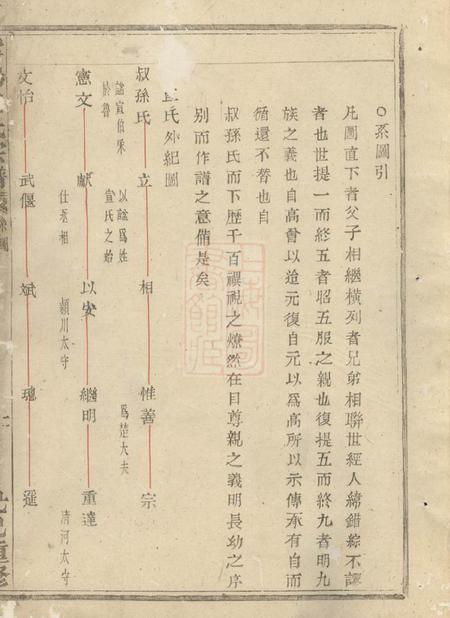 ○系圖引
凡圖直下者父子相繼橫列者兄弟相聯世經人緯錯綜不謬
者也世提一而終五者昭五服之親也復提五而終九者明九
族之義也自高曾以迨元復自元以為高所以示傳承有自而
循還不替也自
叔孫氏而下歷千百禩視之燎然在目尊親之義明長幼之序
別而作譜之意備是矣
氏外紀圖
叔孫氏 立 相 惟善 宗
諡宣伯采於魯
以諡為姓宣氏之始
為楚大夫
憲文 獻 以安 繼明 重達
仕秦相
潁川太守
清河太守
文怡 武偃 斌 瑰 逛